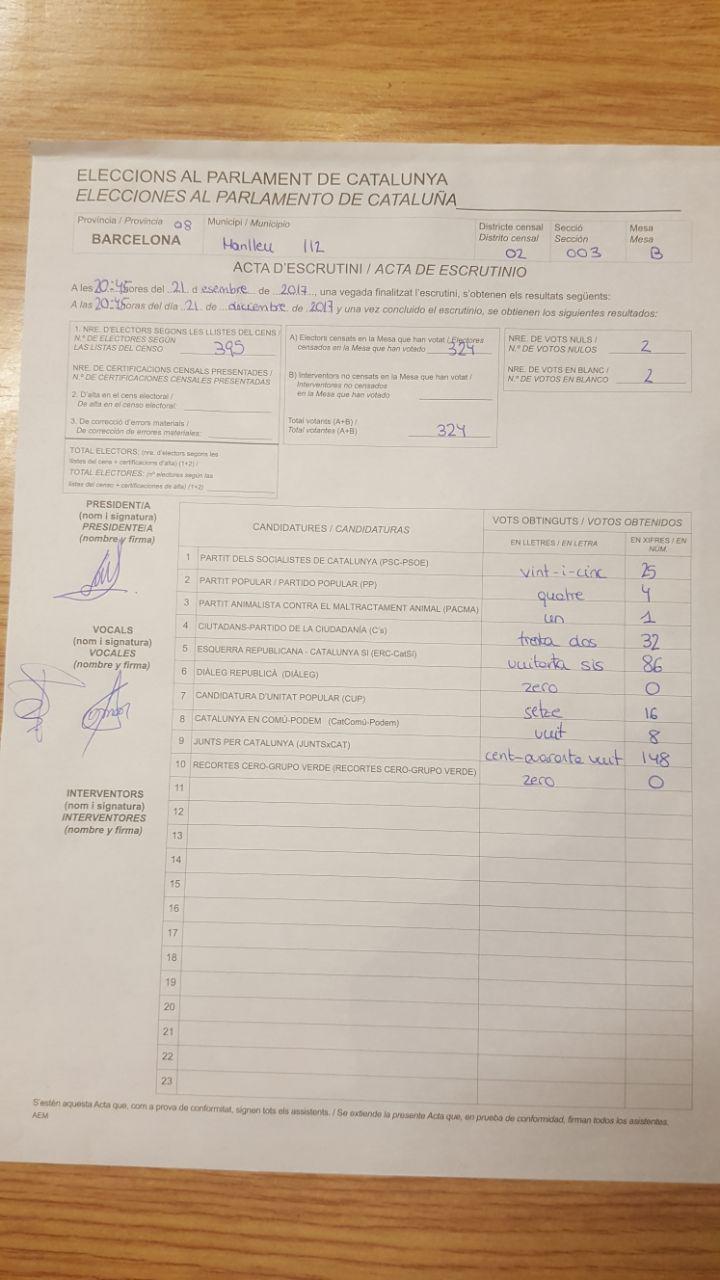 ELECCIONS AL PARLAMENT DE CATALUNYA
ELECCIONES AL PARLAMENTO DE CATALUÑA
Província / Provincia 08 Municipi / Municipio Districte censal Secció Mesa
BARCELONA Manlleu 112 Distrito censal Sección Mesa
02 003 B
ACTA D'ESCRUTINI / ACTA DE ESCRUTINIO
A les 20:45 ores del 21 d esembre de 2017, una vegada finalitzat l'escrutini, s'obtenen els resultats següents:
A las 20:45 oras del día 21 de diciembre de 2017 y una vez concluido el escrutinio, se obtienen los siguientes resultados:
1. NRE. D'ELECTORS SEGONS LES LLISTES DEL CENS /
N.º DE ELECTORES SEGÚN
LAS LISTAS DEL CENSO 395
NRE. DE CERTIFICACIONS CENSALS PRESENTADES /
N.º DE CERTIFICACIONES CENSALES PRESENTADAS
2. D'alta en el cens electoral /
De alta en el censo electoral:
3. De correcció d'errors materials /
De corrección de errores materiales:
TOTAL ELECTORS: (nre. d'electors segons les
llistes del cens + certificacions d'alta) (1+2) /
TOTAL ELECTORES: (nº electores según las
listas del censo + certificaciones de alta) (1+2)
A) Electors censats en la Mesa que han votat / Electores
censados en la Mesa que han votado 324
B) Interventors no censats en la Mesa que han votat /
Interventores no censados
en la Mesa que han votado
Total votants (A+B) /
Total votantes (A+B) 324
NRE. DE VOTS NULS /
N.º DE VOTOS NULOS 2
NRE. DE VOTS EN BLANC /
N.º DE VOTOS EN BLANCO 2
PRESIDENT/A
(nom i signatura)
PRESIDENTE/A
(nombre y firma)
VOCALS
(nom i signatura)
VOCALES
(nombre y firma)
INTERVENTORS
(nom i signatura)
INTERVENTORES
(nombre y firma)
CANDIDATURES / CANDIDATURAS VOTS OBTINGUTS / VOTOS OBTENIDOS
EN LLETRES / EN LETRA EN XIFRES / EN NÚM.
1 PARTIT DELS SOCIALISTES DE CATALUNYA (PSC-PSOE) vint-i-cinc 25
2 PARTIT POPULAR / PARTIDO POPULAR (PP) quatre 4
3 PARTIT ANIMALISTA CONTRA EL MALTRACTAMENT ANIMAL (PACMA) un 1
4 CIUTADANS-PARTIDO DE LA CIUDADANÍA (C's) trenta dos 32
5 ESQUERRA REPUBLICANA - CATALUNYA SI (ERC-CatSí) vuitanta sis 86
6 DIÀLEG REPUBLICÀ (DIÀLEG) zero 0
7 CANDIDATURA D'UNITAT POPULAR (CUP) setze 16
8 CATALUNYA EN COMÚ-PODEM (CatComú-Podem) vuit 8
9 JUNTS PER CATALUNYA (JUNTSxCAT) cent-quaranta vuit 148
10 RECORTES CERO-GRUPO VERDE (RECORTES CERO-GRUPO VERDE) zero 0
11
12
13
14
15
16
17
18
19
20
21
22
23
S'estén aquesta Acta que, com a prova de conformitat, signen tots els assistents. / Se extiende la presente Acta que, en prueba de conformidad, firman todos los asistentes.
AEM